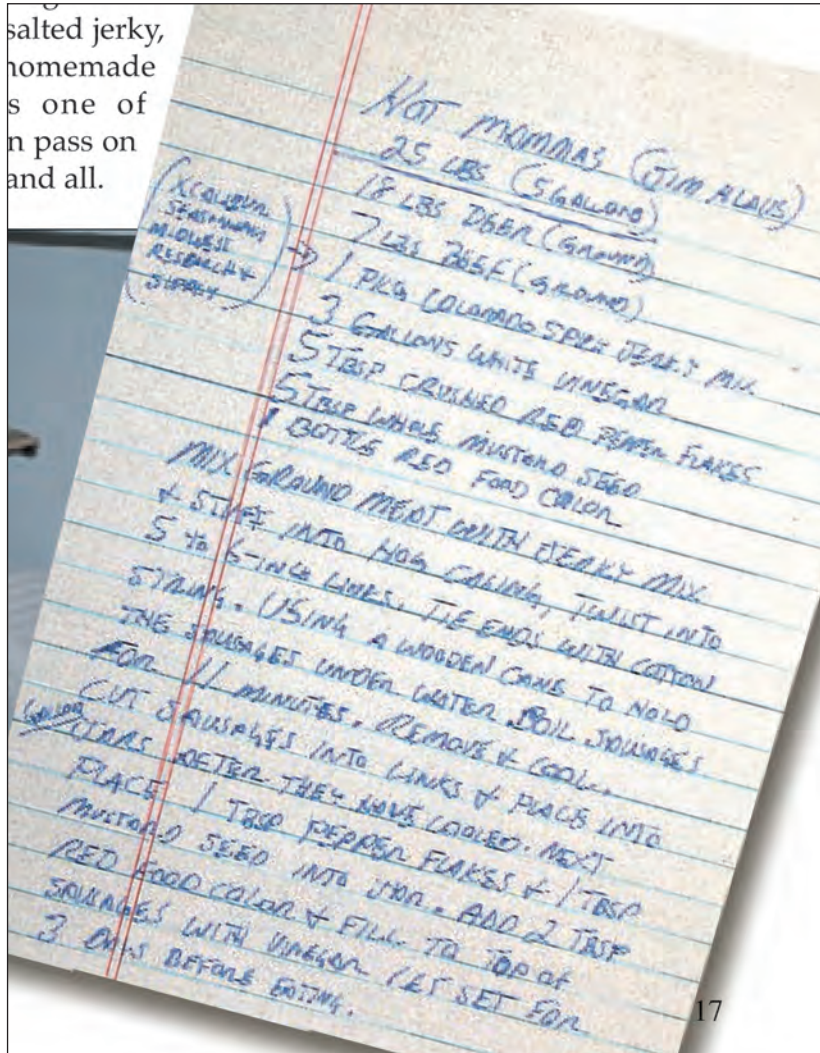 salted jerky,
homemade
s one of
n pass on
and all.
HOT MOMMAS (JIM
25 LBS (5 GALLONS)
18 LBS DEER (GROUND)
7 LBS BEEF (GROUND)
(
SEASONING
MIDWEST
RESEARCH &
SUPPLY) →
1 PKG COLORADO SPICY JERKY MIX
3 GALLONS WHITE VINEGAR
5 TBSP CRUSHED RED PEPPER FLAKES
5 TBSP WHOLE MUSTARD SEED
1 BOTTLE RED FOOD COLOR
MIX GROUND MEAT WITH JERKY MIX
& STUFF INTO HOG CASING, TWIST INTO
5 TO 6-INCH LINKS. TIE ENDS WITH COTTON
STRING. USING A WOODEN CANE TO HOLD
THE SAUSAGES UNDER WATER BOIL SAUSAGES
FOR 11 MINUTES. REMOVE & COOL.
CUT SAUSAGES INTO LINKS & PLACE INTO
GALLON JARS AFTER THEY HAVE COOLED. NEXT
PLACE 1 TBSP PEPPER FLAKES & 1 TBSP
MUSTARD SEED INTO JAR. ADD 2 TBSP
RED FOOD COLOR & FILL TO TOP OF
SAUSAGES WITH VINEGAR LET SET FOR
3 DAYS BEFORE EATING.
17